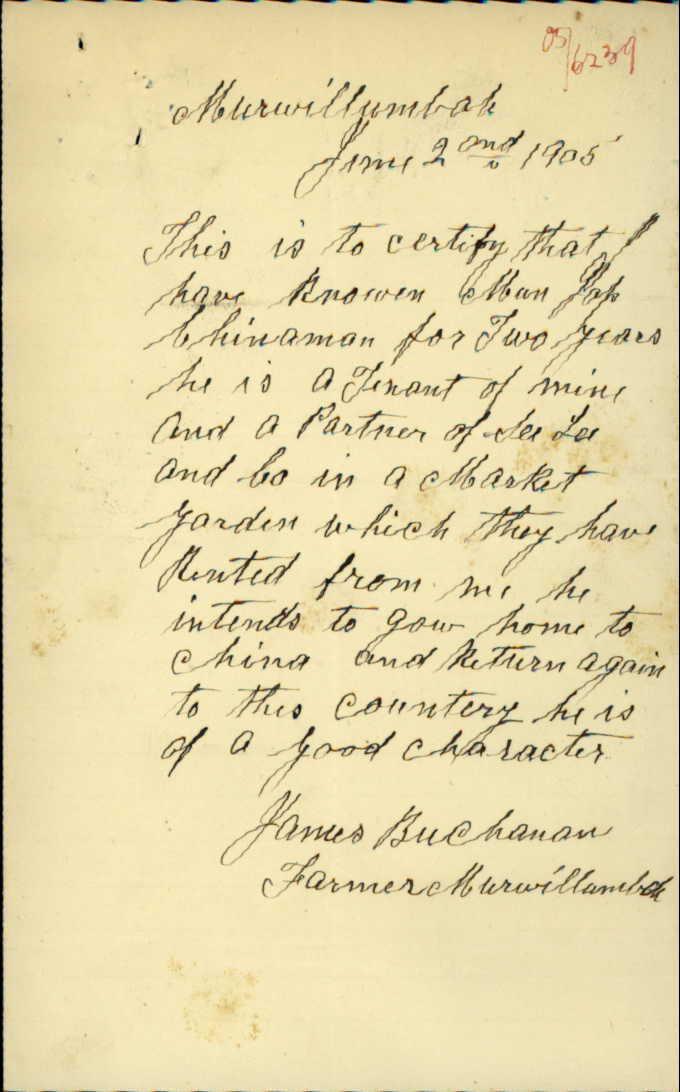 05/6239
Murwillumbah
June 2nd 1905
This is to certify that I
have Knowen Mun Jap
Chinaman for Two years
he is a Tenant of mine
and a Partner of See Lee
and Co in a Market
Garden which they have
Rented from me he
intends to gow home to
China and Return again
to this countery he is
of a good character
James Buchanan
Farmer Murwillumbah